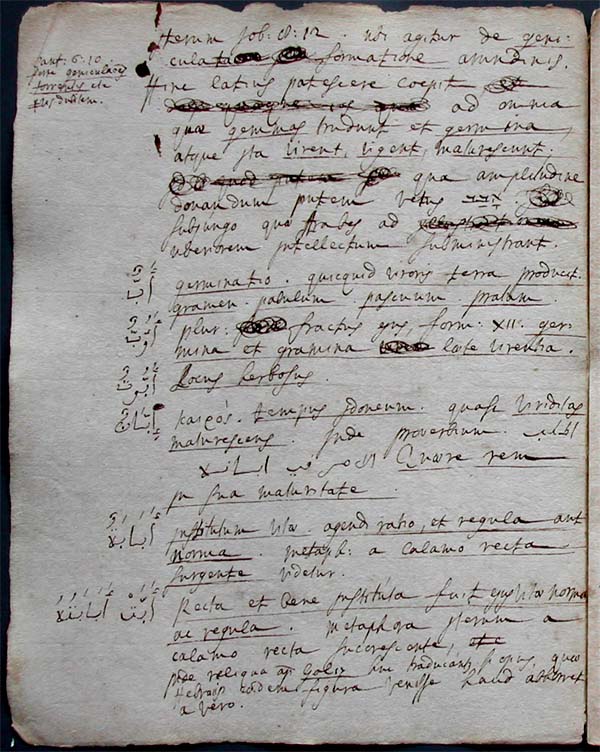 Cant: 6. 10.
torrentis etc
terum Job. 8. 12. ubi agitur de geni-
culata formatione arundinis.
Hinc latius patescere coepit
ad omnia
quae gemmas trudunt et germina,
atque ita virent, vigent, maturescunt.
qua amplitudine
donandum putem vetus
subjungo quae Arabes ad
uberiorem intellectum subministrant.
germinatio. quicquid viroris terra producit.
gramen. pabulum. pascuum. pratum.
plur: fractus ejus, form: XII. ger-
mina et gramina late virentia.
Locus herbosus.
καιρός. tempus idoneum. quasi viriditas
maturescens. Inde proverbium. اطلب
الامر في ابانه Quaere rem
in sua maturitate.
institutum vitae. agendi ratio, et regula aut
norma. metaph: a calamo recta
surgente videtur.
Recta et bene instituta fuit ejus vitae norma
ac regula. metaphora iterum a
calamo recta succrescente, etc
reliqua ap. Golium
eadem figura venisse haud abhorret
a vero.